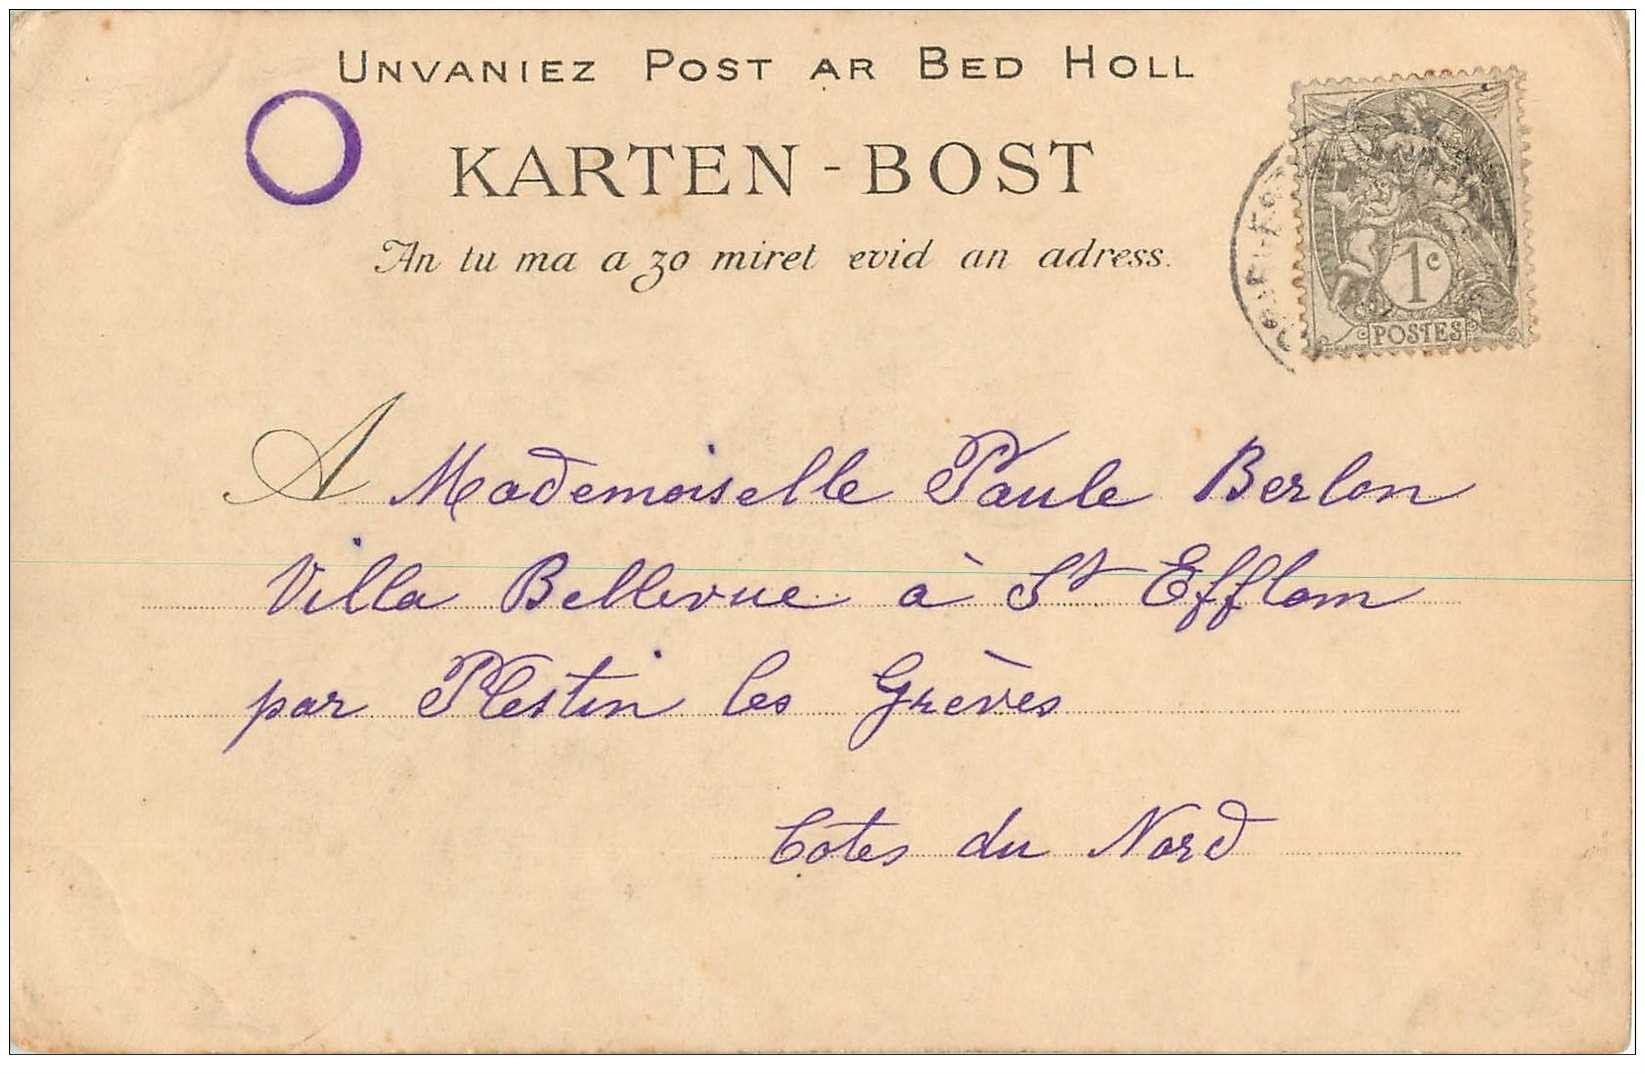 UNVANIEZ POST AR BED HOLL
KARTEN-BOST
An tu ma a zo miret evid an adress.
1c
POSTES
A Mademoiselle Paule Berlon
Villa Bellevue à St Efflam
par Plestin les Grèves
Cotes du Nord